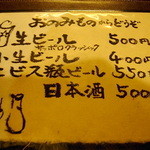 おのみものからどうぞ
生ビール 500円
サッポロクラシック
小生ビール 400円
エビス瓶ビール 550
日本酒 500